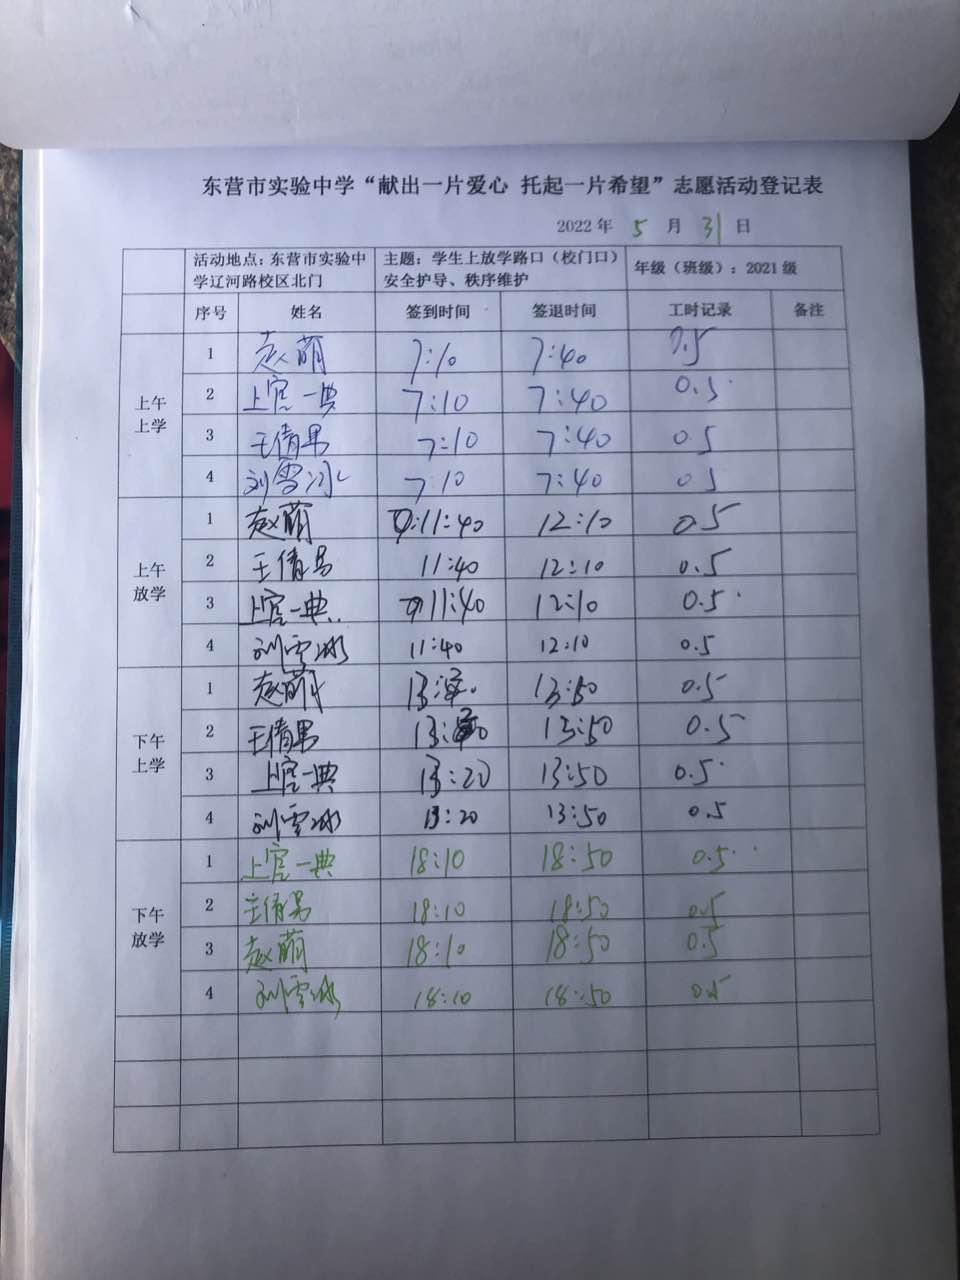 东营市实验中学“献出一片爱心 托起一片希望”志愿活动登记表
2022 年 5 月 31 日
活动地点：东营市实验中学辽河路校区北门 主题：学生上放学路口（校门口）安全护导、秩序维护 年级（班级）：2021 级
序号 姓名 签到时间 签退时间 工时记录 备注
上午上学
1 赵萌 7:10 7:40 0.5
2 上官一典 7:10 7:40 0.5
3 王倩男 7:10 7:40 0.5
4 刘雪冰 7:10 7:40 0.5
上午放学
1 赵萌 11:40 12:10 0.5
2 王倩男 11:40 12:10 0.5
3 上官一典 11:40 12:10 0.5
4 刘雪冰 11:40 12:10 0.5
下午上学
1 赵萌 13:50 0.5
2 王倩男 13:50 0.5
3 上官一典 13:20 13:50 0.5
4 刘雪冰 13:20 13:50 0.5
下午放学
1 上官一典 18:10 18:50 0.5
2 王倩男 18:10 18:50 0.5
3 赵萌 18:10 18:50 0.5
4 刘雪冰 18:10 18:50 0.5